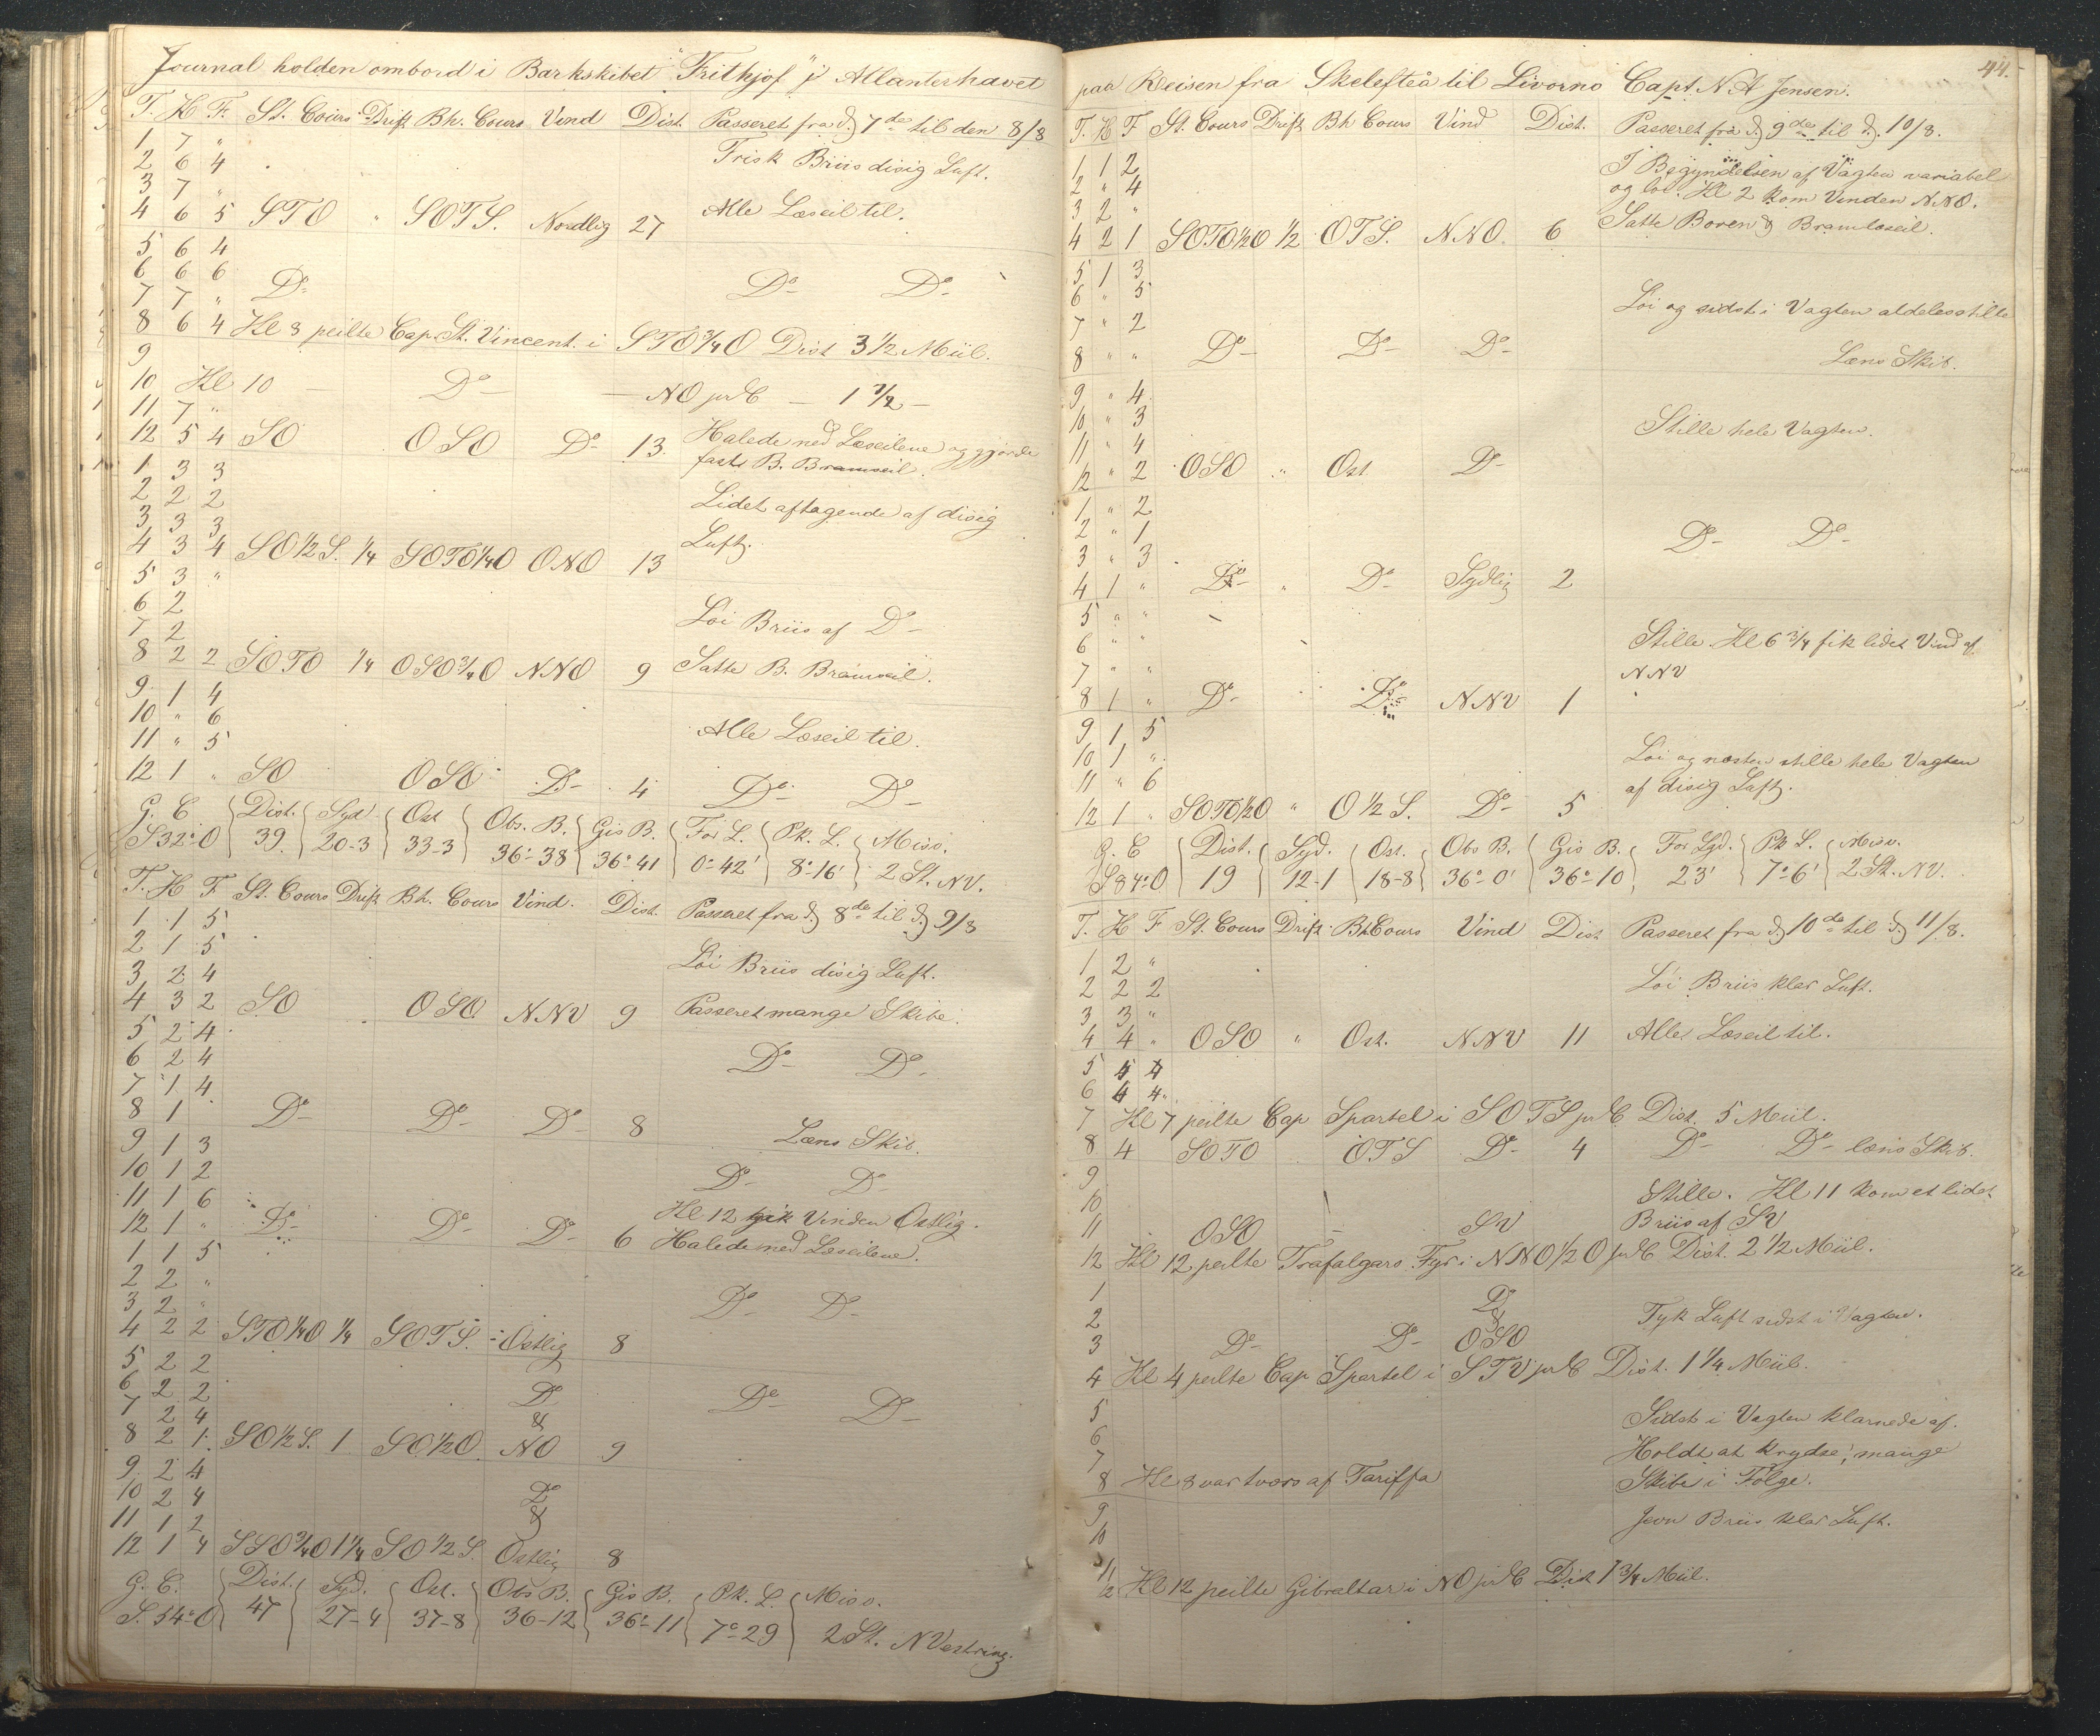 Journal holden ombord i Barkskibet "Frithjof" i Atlanterhavet
T. H F. St. Cours Drift Bh. Cours Vind Dist. Passeret fra d. 7de til den 8/8
1 7 "
2 6 4 Frisk Briis disig Luft.
3 7 "
4 6 5 STO " SOTS. Nordlig 27 Alle Læseil til.
5 6 4
6 6 6 Do Do Do
7 7 "
8 6 4 Kl 8 peilte Cap. St. Vincent. i STO 3/4 O Dist 3 1/2 Miil.
9
10 Kl 10 — Do — NO pr C — 1 1/2 —
11 7 "
12 5 4 SO OSO Do 13. Halede ned Læseilene og gjorde
fast B. Bramseil.
1 3 3
2 2 2 Lidet aftagende af disig
3 3 3 Luft.
4 3 4 SO 1/2 S. 1/4 SOTO 1/4 O ONO 13
5 3 "
6 2 Løi Briis af Do
7 2
8 2 2 SOTO 1/4 OSO 3/4 O NNO 9 Satte B. Bramseil.
9 1 4
10 " 6
11 " 5 Alle Læseil til.
12 1 " SO OSO Do 4 Do Do
G. C Dist. Syd Ost Obs. B. Gis B. For L. Pk. L. Misv.
S 32° O 39. 20-3 33-3 36°-38 36°-41 0°-42' 8°-16' 2 St. NV.
T. H F St. Cours Drift Bh. Cours Vind. Dist. Passeret fra d. 8de til d. 9/8
1 1 5
2 1 5 Løi Briis disig Luft.
3 2 4
4 3 2 SO OSO NNV 9 Passeret mange Skibe.
5 2 4
6 2 4 Do Do
7 1 4
8 1 Do Do Do 8 Læns Skib.
9 1 3
10 1 2 Do Do
11 1 6 Kl 12 gik Vinden Ostlig.
12 1 " Do Do Do 6 Halede ned Læseilene.
1 1 5
2 2 "
3 2 " Do Do
4 2 2 STO 1/4 O 1/4 SOTS. Ostlig 8
5 2 2
6 2 2 Do Do Do
7 2 4 &
8 2 1 SO 1/2 S. 1 SO 1/2 O. NO 9
9 2 4
10 2 4 Do
11 1 2 &
12 1 4 SSO 3/4 O 1 1/4 SO 1/2 S. Ostlig 8
G. C. Dist. Syd. Ost. Obs B. Gis B. Pk. L. Misv.
S. 54° O 47 27-4 37-8 36-12 36°-11 7°-29 2 St. NVestring.
44.
paa Reisen fra Skelefteå til Livorno Capt. N. A Jensen.
T. H F St. Cours Drift Bh Cours Vind Dist. Passeret fra d. 9de til d. 10/8.
1 1 2 I Begyndelsen af Vagten variabel
2 " 4 og løi. Kl 2 kom Vinden NNO.
3 2 " Satte Boven & Bramlæseil.
4 2 1 SOTO 1/2 O 1/2 OTS. NNO. 6
5 1 3
6 " 5 Løi og sidst i Vagten aldeles stille
7 " 2
8 " " Do Do Do Læns Skib.
9 " 4
10 " 3 Stille hele Vagten.
11 " 4
12 " 2 OSO " Ost. Do
1 " 2
2 " 1 Do Do
3 " 3
4 1 " Do " Do Sydlig 2
5 " "
6 " " Stille. Kl 6 3/4 fik lidet Vind af
7 " " NNV
8 1 " Do Do NNV 1
9 1 5
10 1 " Løi og næsten stille hele Vagten
11 " 6 af disig Luft.
12 1 " SOTO 1/2 O " O 1/2 S. Do 5
G. C Dist. Syd. Ost. Obs B. Gis B. For. Lgd. Pk L. Misv.
S 84° O 19 12-1 18-8 36°-0' 36°-10 23' 7°-6' 2 St. NV.
T. H F St. Cours Drift Bh Cours Vind Dist Passeret fra d. 10de til d. 11/8.
1 2 "
2 2 2 Løi Briis klar Luft.
3 3 "
4 4 " OSO " Ost. NNV 11 Alle Læseil til.
5 4 4
6 4 4
7 Kl 7 peilte Cap Spartel i SOTS pr C Dist. 5 Miil.
8 4 SOTO OTS Do 4 Do Do læns Skib.
9
10 Stille. Kl 11 kom et lidet
11 OSO — SV Briis af SV
12 Kl 12 peilte Trafalgars Fyr i NNO 1/2 O pr C Dist. 2 1/2 Miil.
1 Do
2 & Tyk Luft sidst i Vagten.
3 Do Do OSO
4 Kl 4 peilte Cap Spartel i STV pr C Dist. 1 1/4 Miil.
5 Sidst i Vagten klarnede af.
6 Holdt at krydse; mange
7 Skibe i Følge.
8 Kl 8 var tværs af Tariffa
9 Jevn Briis klar Luft.
10
11
12 Kl 12 peilte Gibraltar i NO pr C Dist 1 3/4 Miil.